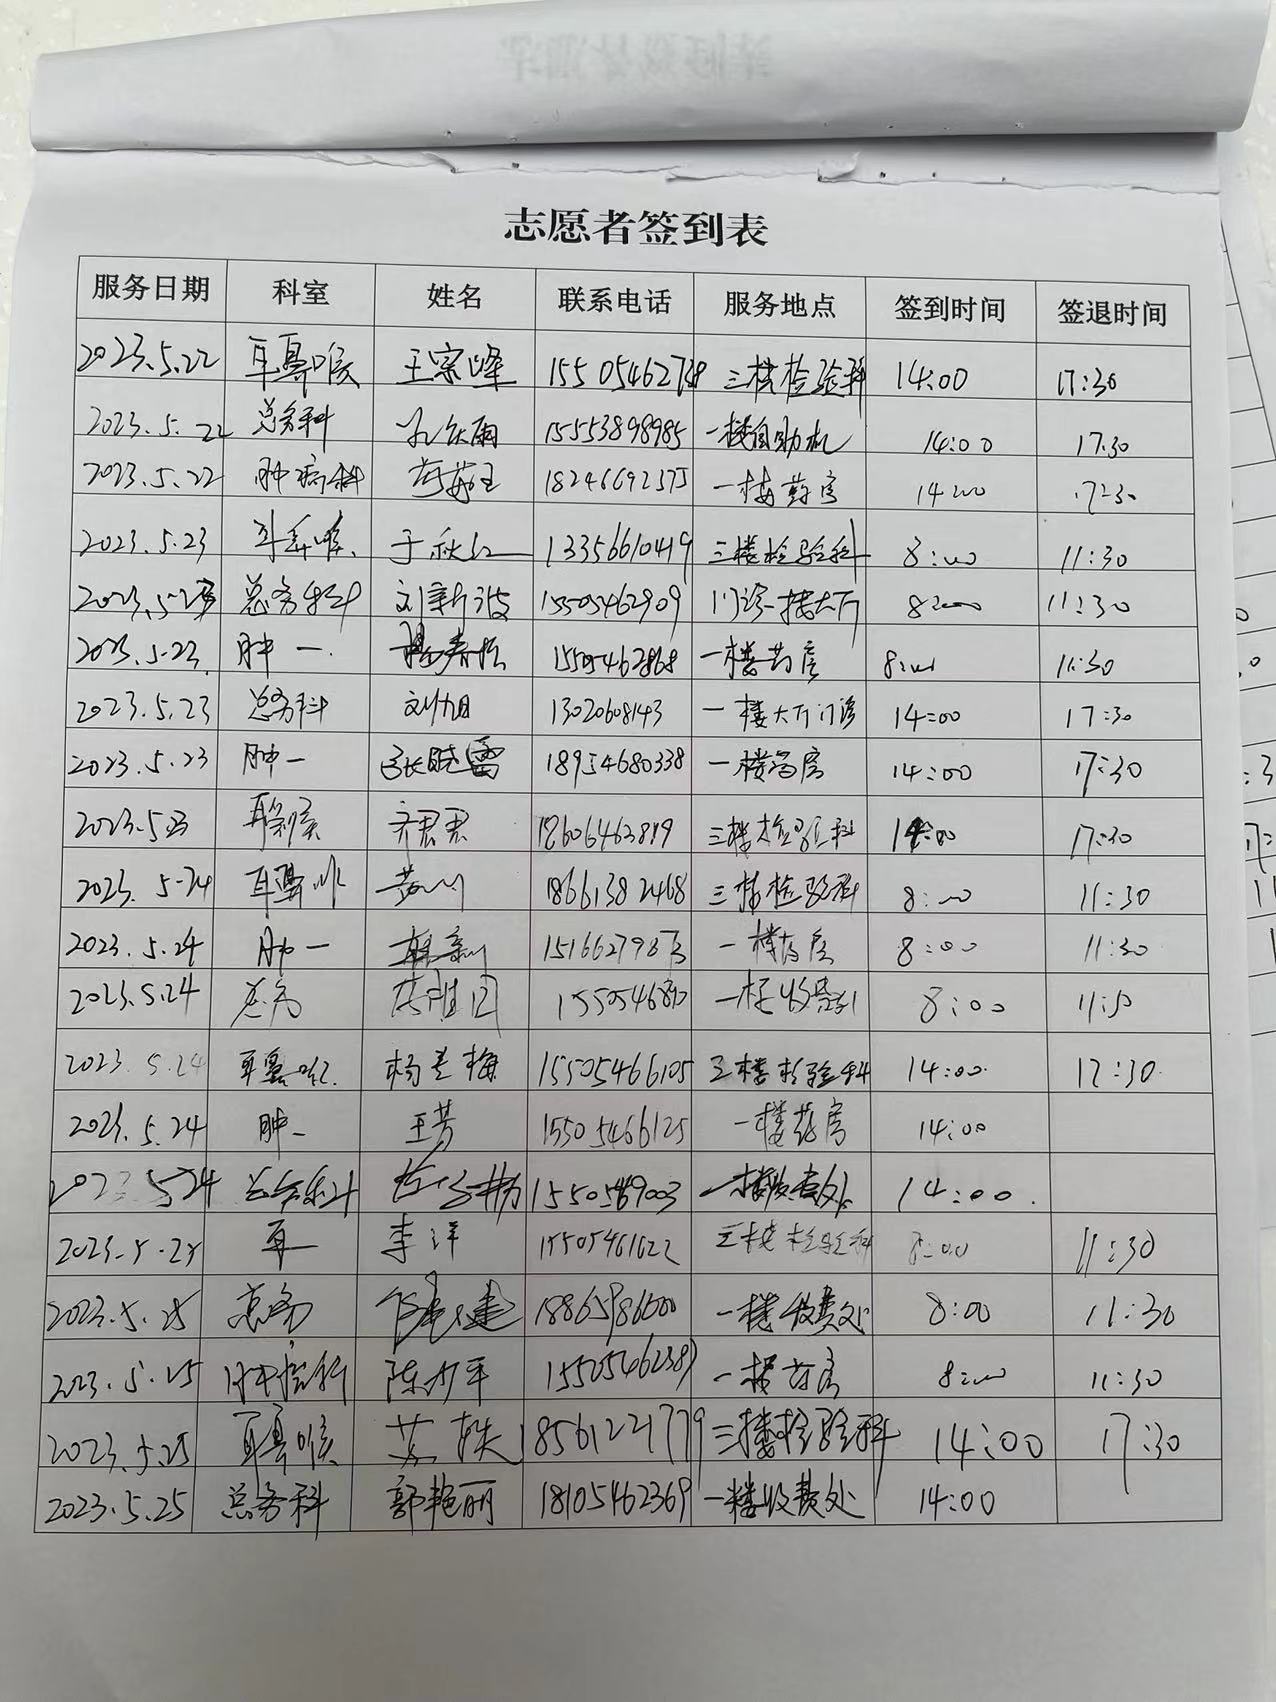 志愿者签到表
服务日期 科室 姓名 联系电话 服务地点 签到时间 签退时间
2023.5.22 耳鼻喉 王宗峰 三楼检验科 14:00 17:30
2023.5.22 总务科 15553898985 一楼自助机 14:00 17:30
2023.5.22 肿病科 一楼药房 14:00 17:30
2023.5.23 耳鼻喉 于秋红 13356610419 三楼检验科 8:00 11:30
2023.5.23 总务科 刘新波 15505462909 门诊一楼大厅 8:00 11:30
2023.5.23 肿一 15505462868 一楼药房 8:00 11:30
2023.5.23 总务科 刘旭 13020608143 一楼大厅门诊 14:00 17:30
2023.5.23 肿一 张晓雷 18954680338 一楼药房 14:00 17:30
2023.5.23 齐君君 三楼检验科 14:00 17:30
2023.5.24 耳鼻喉 18661382468 三楼检验科 8:00 11:30
2023.5.24 肿一 一楼药房 8:00 11:30
2023.5.24 总务 8:00 11:30
2023.5.24 耳鼻喉 杨兰梅 15505466105 三楼检验科 14:00 17:30
2023.5.24 肿一 王芳 15505466125 一楼药房 14:00
2023.5.24 总务科 14:00
2023.5.25 李洋 15505461622 三楼检验科 8:00 11:30
2023.5.25 总务 一楼收费处 8:00 11:30
2023.5.25 一楼药房 8:00 11:30
2023.5.25 耳鼻喉 18561221779 三楼检验科 14:00 17:30
2023.5.25 总务科 郭艳丽 18105462369 一楼收费处 14:00